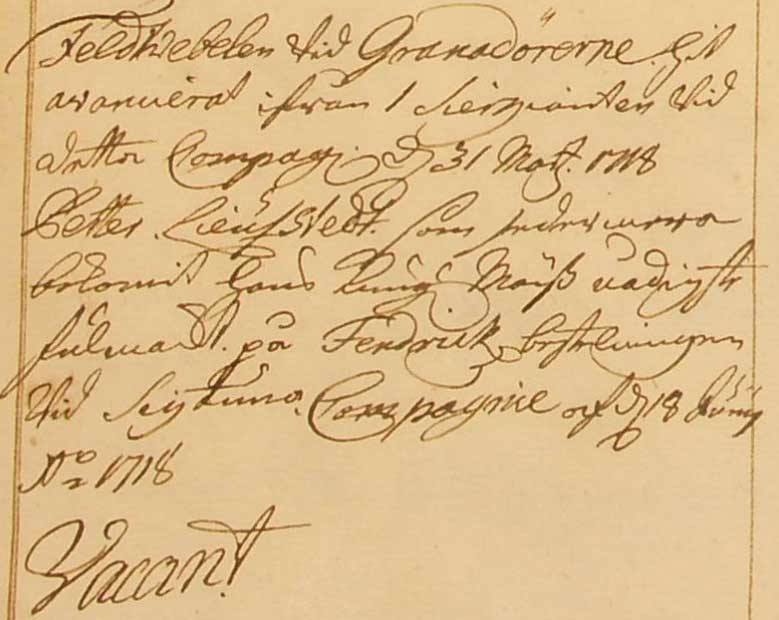 Feldtwebelen wid Granadörerne hit
avancerat ifrån 1 Sierzianten wid
detta Compagi: d 31 Mart. 1718
Petter som sedermera
bekomit hans Kungl Maijß nådigste
fulmackt. på Fendrick bestelningen
wid Sigtuna Compagnie af d 18 Junij
No 1718
Vacant.